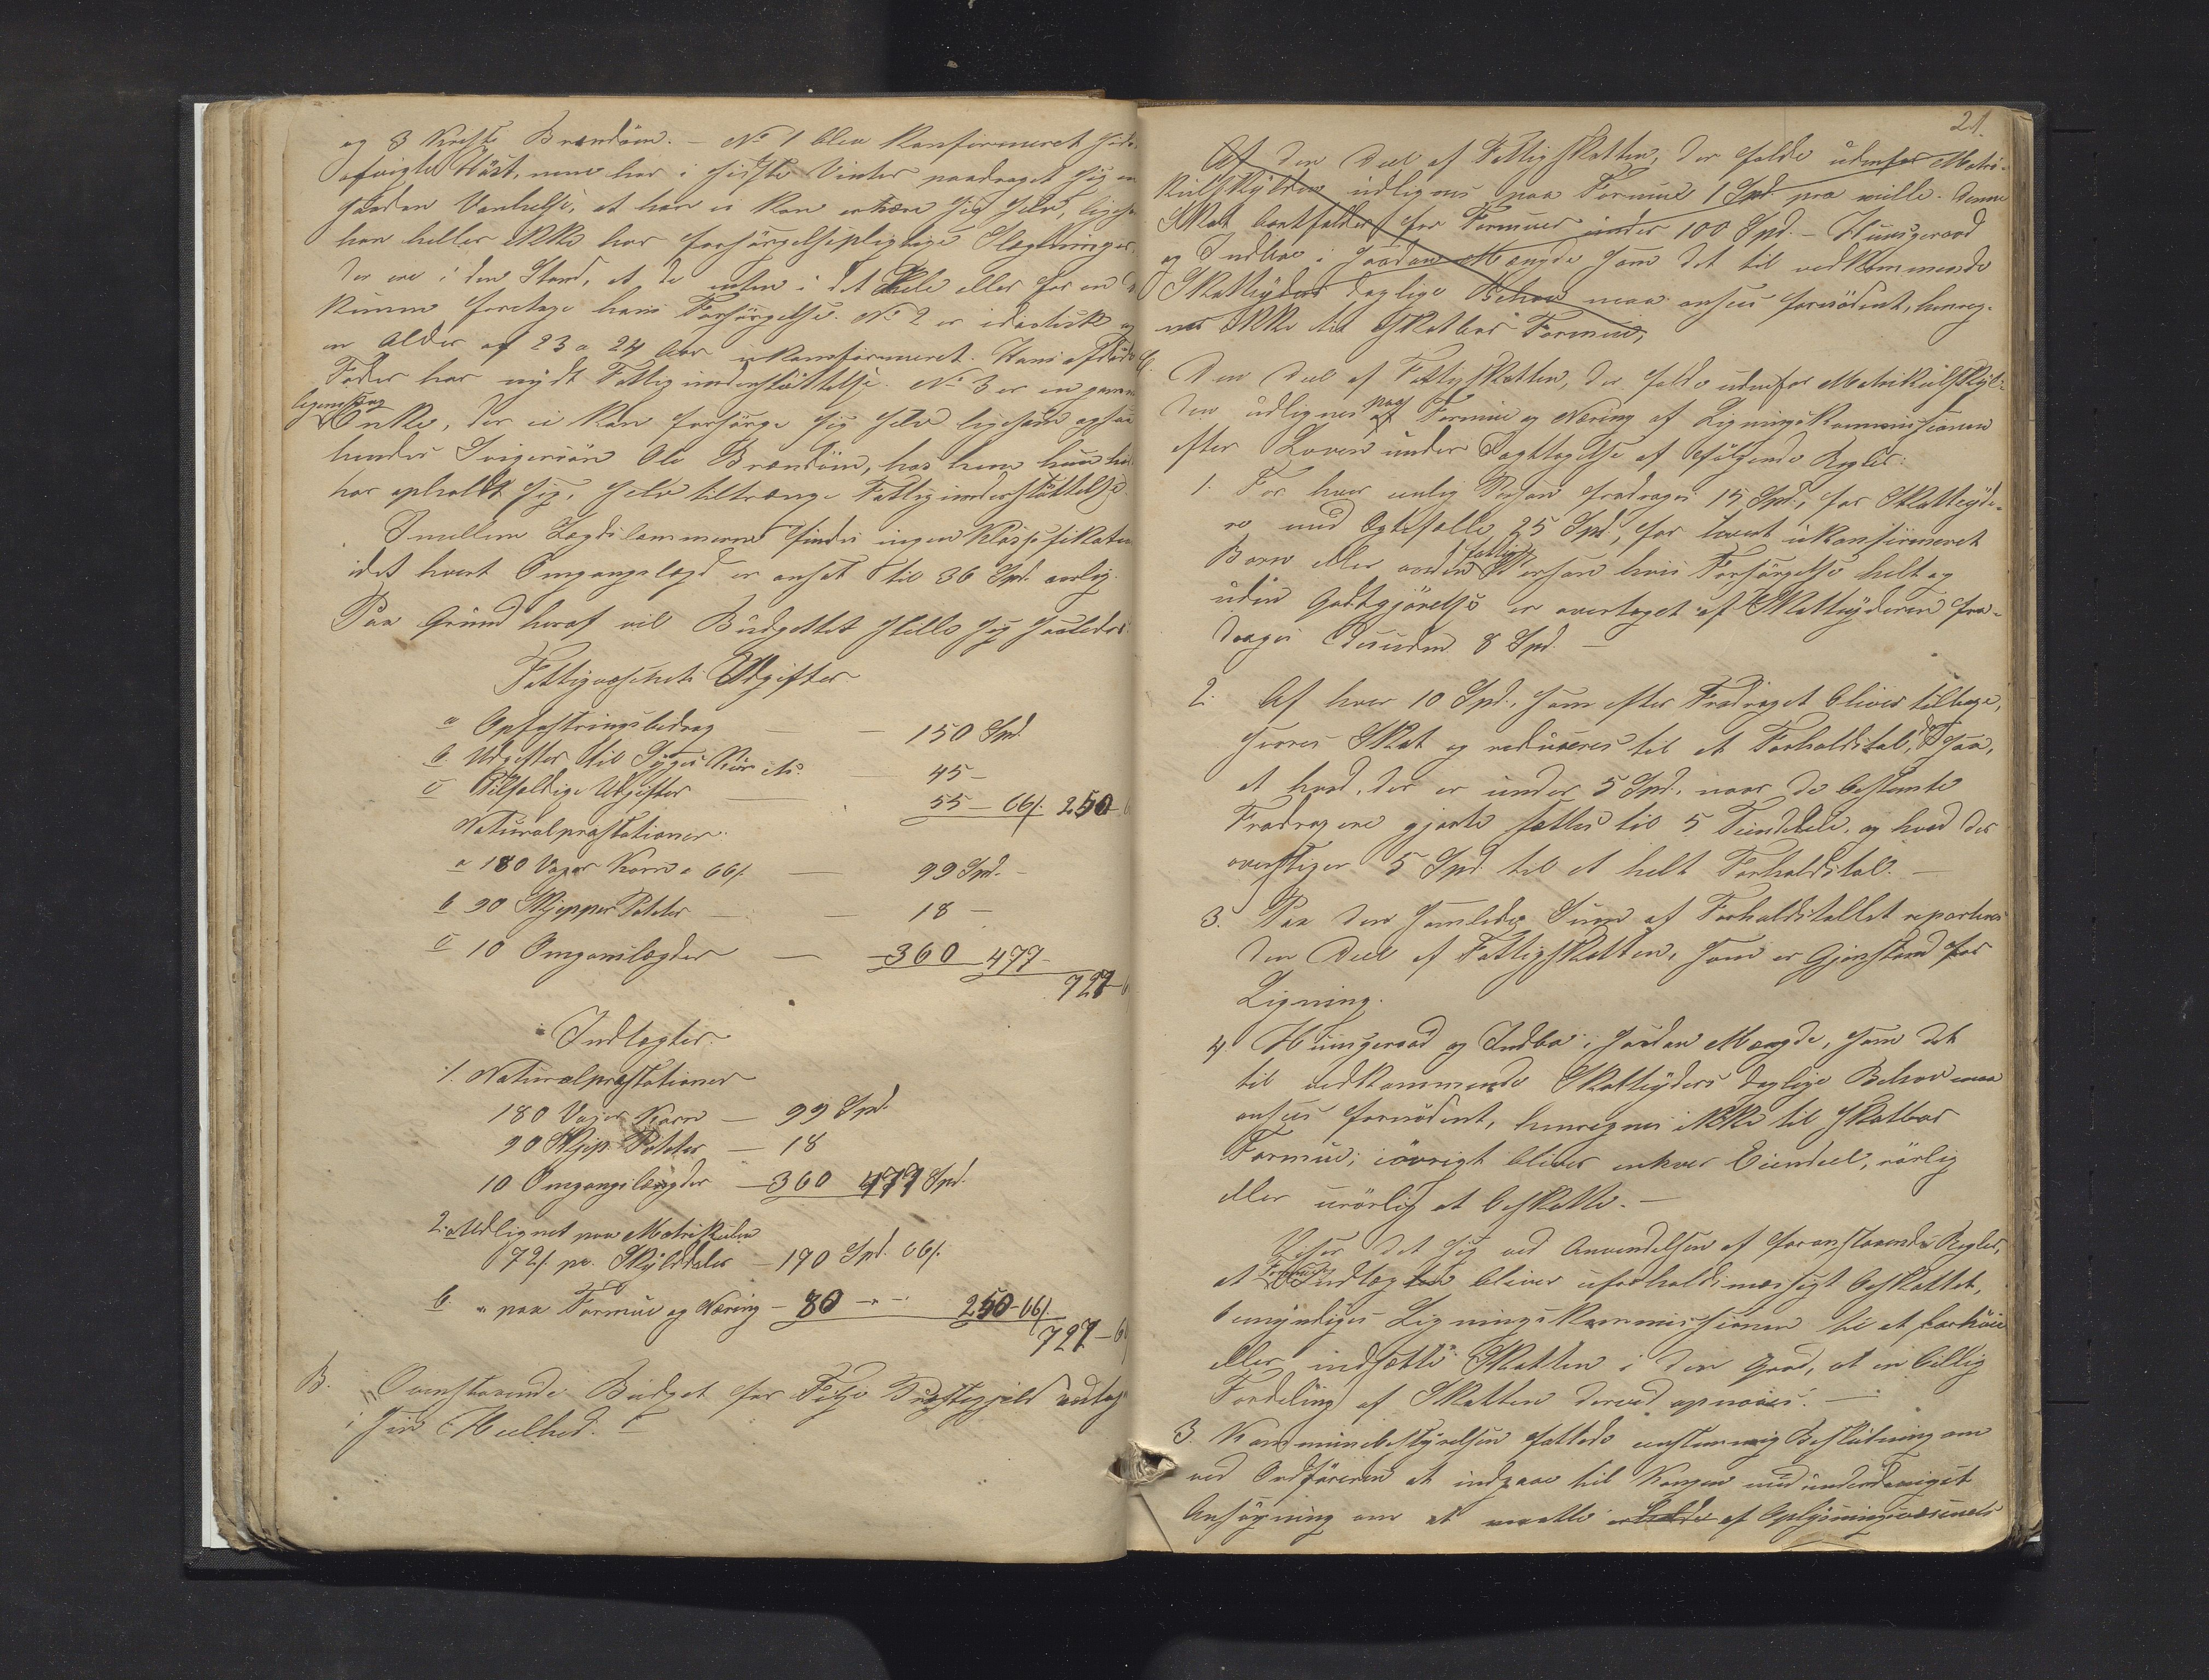 og 3 Kirsti Brandön. – No 1 blev konfirmeret sid-
afvigte Höst, men har i sidste Vinter paadraget sig en
saadan Vanhelse, at han ei kan ernære sig selv, ligesom
han heller ikke har forsörgelsespligtige Slægtninger,
der ere i den Stand, at de enten i det Hele eller for en
kunne foretage hans Forsörgelse. No 2 er idiotisk og
en Alder af 23 a 24 Aar ukonfirmeret. Hans afdöde
Fader har nydt Fattigunderstöttelse. No 3 er en gammel
legemsvag
Enke, der ei kan forsörge sig selv ligesom ogsaa
hendes Svigersön Ole Brandön, hos hvem hun hid-
har opholdt sig, selv tiltrænge Fattigunderstöttelse.
Imellem Lægdslemmerne findes ingen Klassifikation
idet hvert Omgangslægd er ansat til 36 Spd. aarlig.
Paa Grund heraf vil Budgettet stille sig saaledes:
Fattigvæsenets Udgifter.
a Opfostringsbidrag — — 150 Spd.
b. Udgifter til Syges Kur etc. — 45 –
c Tilfældige Udgifter — 55 – 66/. 250 – 6
Naturalpræstationer:
a 180 Voger Korn a 66/. — 99 Spd. –
b 90 Skjepper Poteter — — 18 –
c 10 Omgangslægder — 360 – 477 –
727 – 6
Indtægter.
1. Naturalpræstationer
180 Voger Korn — 99 Spd.
90 Skjep. Poteter — 18
10 Omgangslægder — 360 477 Spd.
2. a Udlignet paa Matrikulen
72/. pr. Skylddaler – 170 Spd. 66/.
b. " paa Formue og Næring – 80 – " – 250 – 66/.
727 – 6
B. Ovenstaaende Budget for Præstegjeld vedtages
i sin Heelhed. –
21.
Af den Deel af Fattigskatten, der falde udenfor Matri-
kulskylden udlignes paa Formue 1 Spd. pro mille. Denne
Skat bortfalder for Formuer under 100 Spd. – Huusgeraad
og Indbo i saadan Mængde som det til vedkommende
Skatteyders daglige Behov maa ansees fornödent, henreg-
nes ikke til skatbar Formue,
C. Den Deel af Fattigskatten, der falde udenfor Matrikulskyl-
den udlignes paa Formue og Næring af Ligningskommissionen
efter Loven under Iagttagelse af fölgende Regler:
1. For hver enlig Person fradrages 15 Spd., for Skatteyde-
re med Egtefælle 25 Spd., for hvert ukonfirmeret
Barn eller anden fattig Person hvis Forsörgelse helt og
uden Godtgjörelse er overtaget af Skatteyderen fra-
drages desuden 8 Spd. –
2. Af hver 10 Spd., som efter Fradraget bliver tilbage,
svares Skat og reduceres til et Forholdstal, dog saa,
at hvad, der er under 5 Spd. naar de bestemte
Fradrag ere gjorte sættes til 5 Tiendedele, og hvad der
overstiger 5 Spd. til et helt Forholdstal. –
3. Paa den samlede Sum af Forholdstallet reparteres
den Deel af Fattigskatten, som er Gjenstand for
Ligning.
4 Huusgeraad og Indbo i saadan Mængde, som det
til vedkommende Skatteyders daglige Behov maa
ansees fornödent, henregnes ikke til skatbar
Formue; iövrigt bliver enhver Eiendeel, rörlig
eller urörlig at beskatte. –
Viser det sig ved Anvendelsen af foranstaaende Regler,
at Indtægten bliver uforholdsmæssigt beskattet,
bemyndiges Ligningskommissionen til at forhöie
eller nedsætte Skatten i den Grad, at en billig
Fordeling af Skatten derved opnaaes. –
3. Kommunebestyrelsen fattede eenstemmig Beslutning om
ved Ordföreren at indgaae til Kongen med underdanigst
Ansögning om at maatte erholde af Oplysningsvæsenets